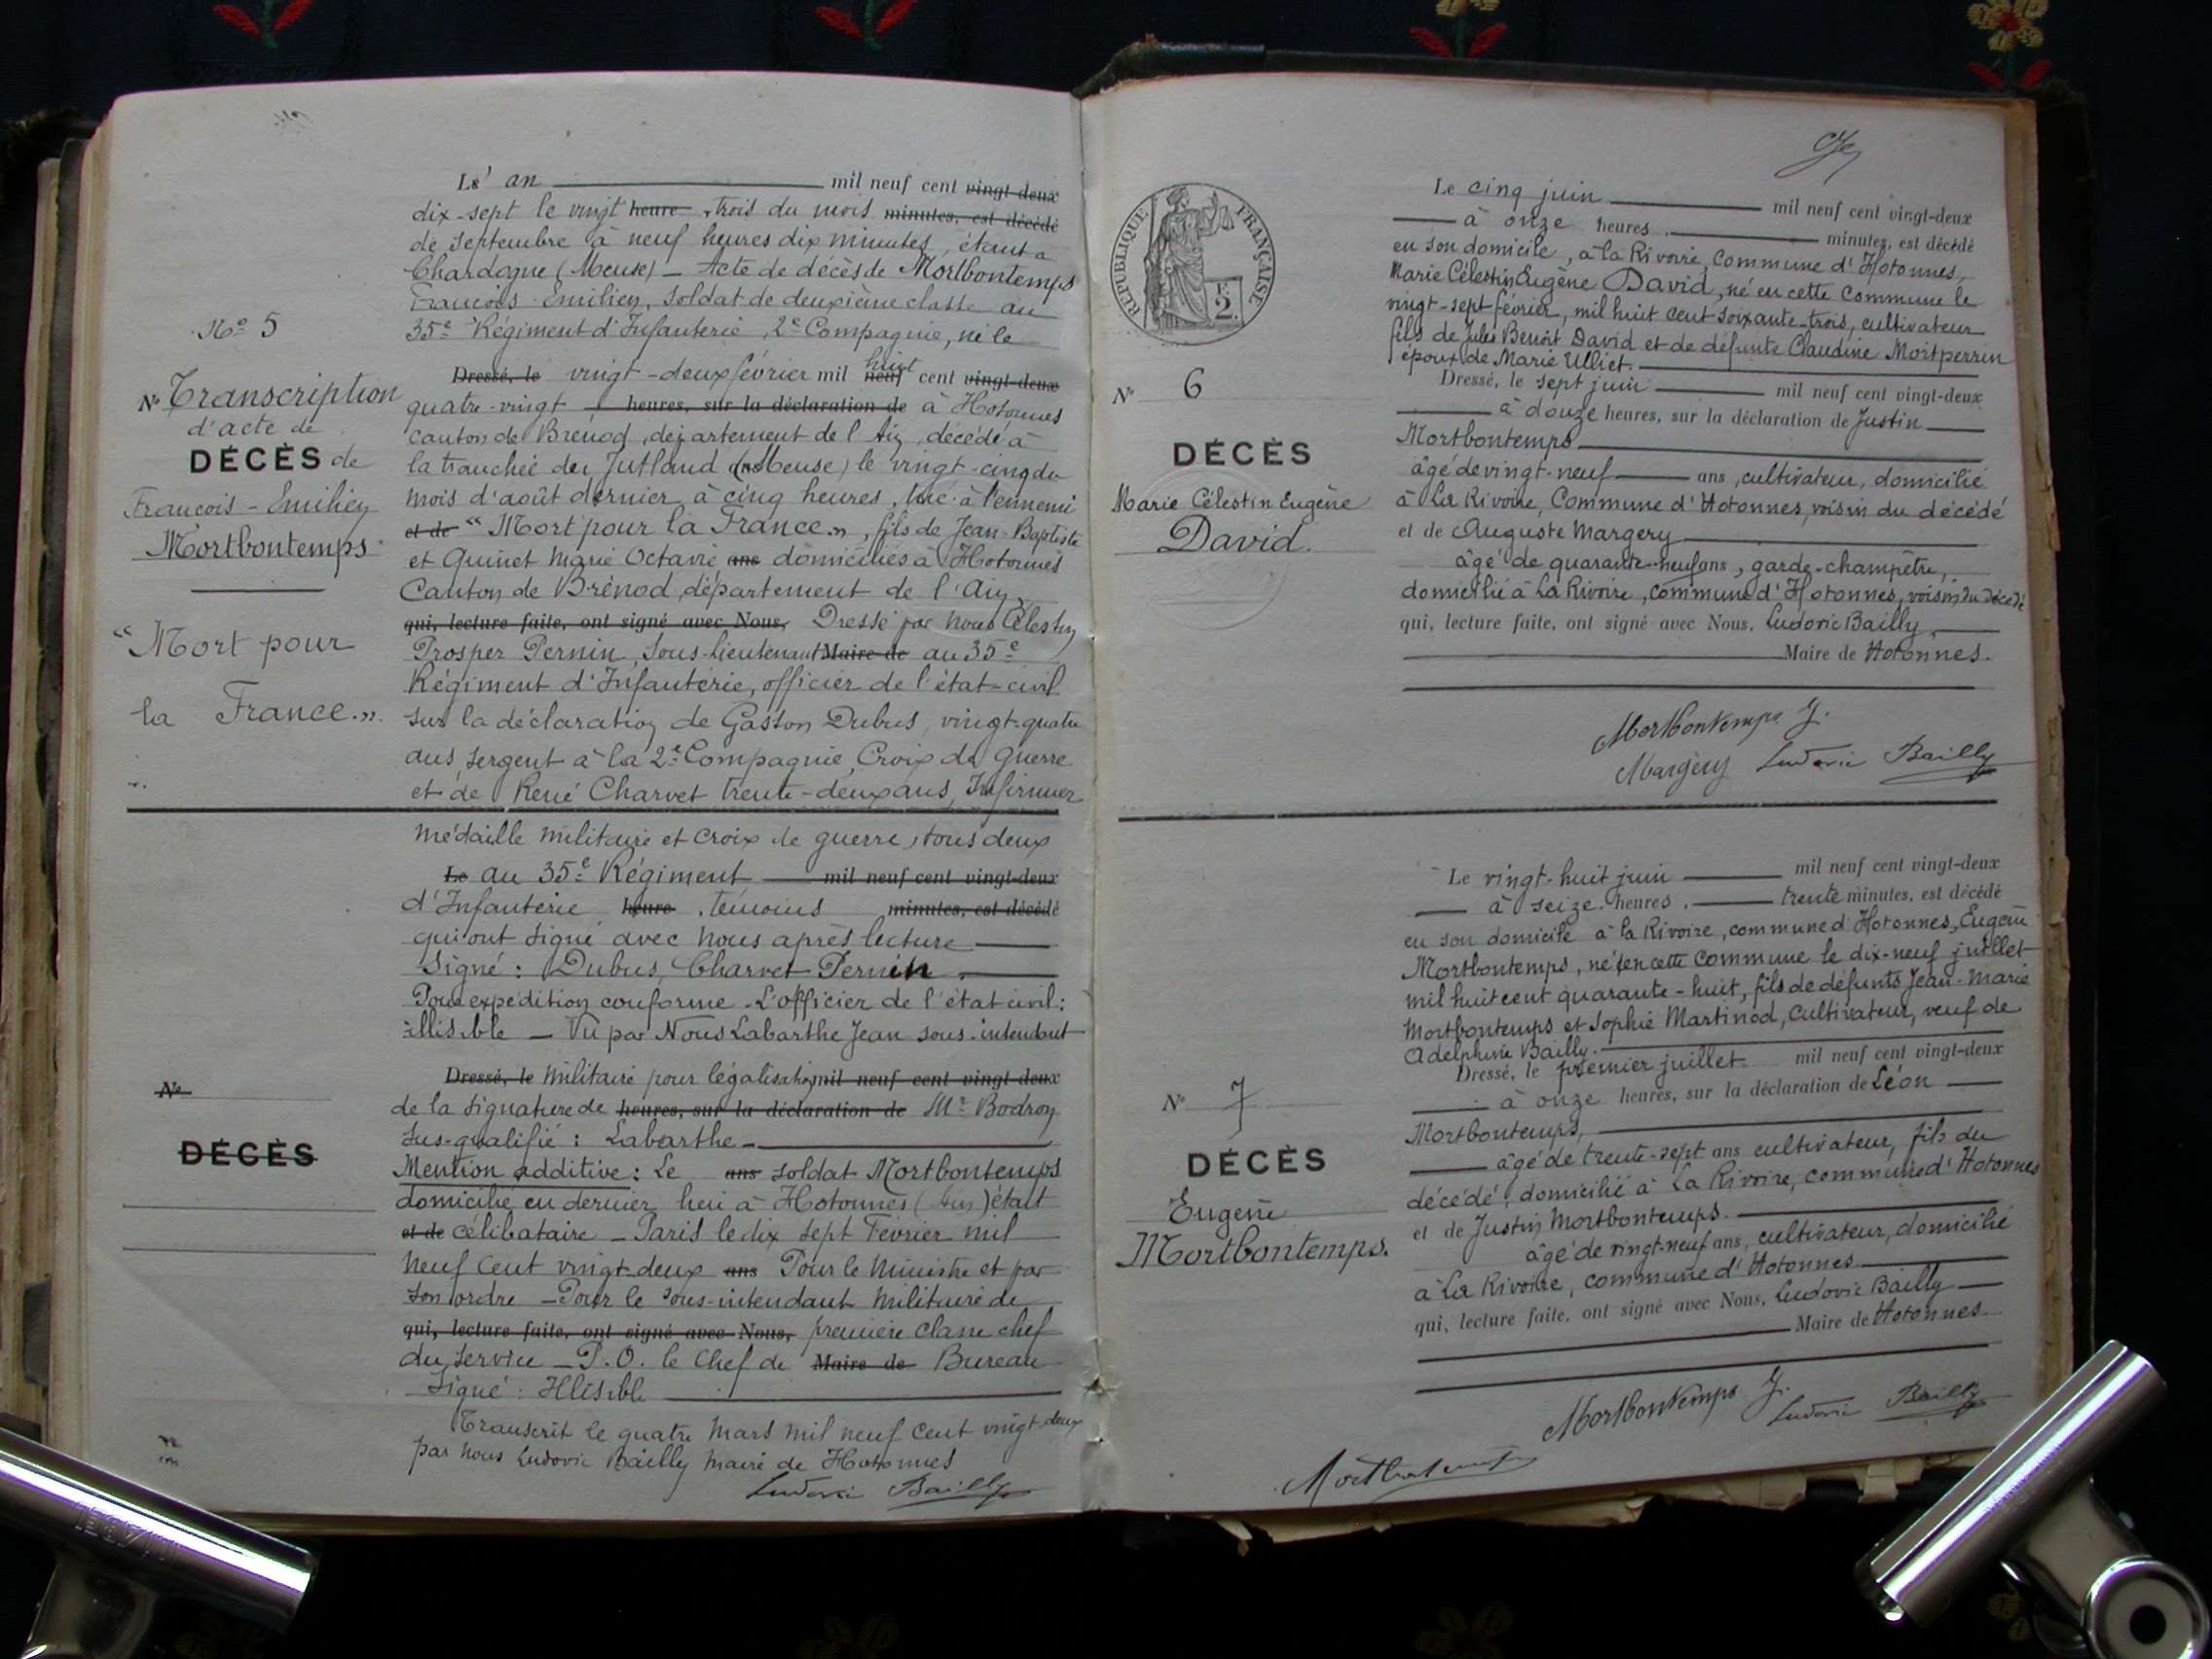 L' an mil neuf cent vingt-deux
dix-sept le vingt heure trois du mois minutes, est décédé
de septembre à neuf heures dix minutes, étant à
Chardogne (Meuse) — Acte de décès de Mortbontemps
François Emilien, soldat de deuxième classe au
35e Régiment d'Infanterie, 2e Compagnie, né le
Dressé, le vingt-deux février mil neuf huit cent vingt-deux
quatre-vingt heures, sur la déclaration de à Hotonnes
canton de Brénod, département de l'Ain, décédé à
la tranchée du Jutland (Meuse) le vingt-cinq du
mois d'août dernier à cinq heures, tué à l'ennemi
et de "Mort pour la France", fils de Jean-Baptiste
et Quinet Marie Octavie ans domiciliés à Hotonnes
Canton de Brénod, département de l'Ain,
qui, lecture faite, ont signé avec Nous, Dressé par nous Célestin
Prosper Pernin, Sous-lieutenant Maire de au 35e
Régiment d'Infanterie, officier de l'état-civil
sur la déclaration de Gaston Dubus, vingt-quatre
ans, sergent à la 2e Compagnie, Croix de Guerre
et de René Charvet trente-deux ans, Infirmier
No 5
No Transcription
d'acte de
DÉCÈS de
François-Emilien
Mortbontemps
"Mort pour
la France."
médaille militaire et croix de guerre, tous deux
Le au 35e Régiment mil neuf cent vingt-deux
d'Infanterie heure, témoins minutes, est décédé
qui ont signé avec nous après lecture
Signé : Dubus, Charvet Pernin
Pour expédition conforme - L'officier de l'état civil :
illisible — Vu par Nous Labarthe Jean sous-intendant
Dressé, le militaire pour légalisation mil neuf cent vingt-deux
de la signature de heures, sur la déclaration de Mr Bodroy
sus-qualifié : Labarthe —
Mention additive : Le ans soldat Mortbontemps
domicilié en dernier lieu à Hotonnes (Ain) était
et de célibataire — Paris le dix sept Février mil
neuf cent vingt-deux ans Pour le Ministre et par
son ordre — Pour le sous-intendant militaire de
qui, lecture faite, ont signé avec Nous, première classe chef
du service — P.O. le Chef de Maire de Bureau
Signé : Illisible
Transcrit le quatre mars mil neuf cent vingt-deux
par nous Ludovic Bailly maire de Hotonnes
Ludovic Bailly
No
DÉCÈS
RÉPUBLIQUE FRANÇAISE
2 F.
Le cinq juin mil neuf cent vingt-deux
à onze heures, minutes, est décédé
en son domicile, à la Rivoire, Commune d'Hotonnes,
Marie Célestin Eugène David, né en cette Commune le
vingt-sept février, mil huit cent soixante-trois, cultivateur
fils de Jules Benoît David et de défunte Claudine Montperrin
époux de Marie Ulliet.
Dressé, le sept juin mil neuf cent vingt-deux
à douze heures, sur la déclaration de Justin
Mortbontemps
âgé de vingt-neuf ans, cultivateur, domicilié
à La Rivoire, Commune d'Hotonnes, voisin du décédé
et de Auguste Margery
âgé de quarante-neuf ans, garde-champêtre,
domicilié à La Rivoire, commune d'Hotonnes, voisin du décédé
qui, lecture faite, ont signé avec Nous, Ludovic Bailly,
Maire de Hotonnes.
Mortbontemps J.
Margery Ludovic Bailly
No 6
DÉCÈS
Marie Célestin Eugène
David.
Le vingt-huit juin mil neuf cent vingt-deux
à seize heures, trente minutes, est décédé
en son domicile à la Rivoire, commune d'Hotonnes, Eugène
Mortbontemps, né en cette Commune le dix-neuf juillet
mil huit cent quarante-huit, fils de défunts Jean-Marie
Mortbontemps et Sophie Martinod, Cultivateur, veuf de
Adelphine Bailly.
Dressé, le premier juillet mil neuf cent vingt-deux
à onze heures, sur la déclaration de Léon
Mortbontemps,
âgé de trente-sept ans cultivateur, fils du
décédé, domicilié à La Rivoire, commune d'Hotonnes
et de Justin Mortbontemps.
âgé de vingt-neuf ans, cultivateur, domicilié
à La Rivoire, commune d'Hotonnes
qui, lecture faite, ont signé avec Nous, Ludovic Bailly
Maire de Hotonnes
Mortbontemps J. Ludovic Bailly
Mortbontemps
No 7
DÉCÈS
Eugène
Mortbontemps.